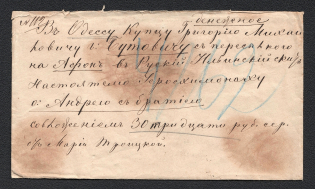 денежное
Въ Одессу Купцу Григорію Михай
ловичу г. Бутовичу съ пересылкою
на Афонъ въ Рускій Ильинскій скитъ
Настоятелю Іеросхимонаху
о: Андрею съ братіею
со вложеніемъ 30 тридцати руб. сер.
отъ Маріи Троицкой